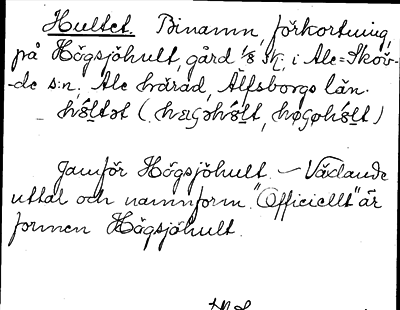 Hultet. Binamn, förkortning
på Högsjöhult, gård 1/8 i Ale-Sköv-
-de s:n, Ale härad, Älfsborgs län.
Jämför Högsjöhult. — Växlande
uttal och namnform. "Officiellt" är
formen Högsjöhult.